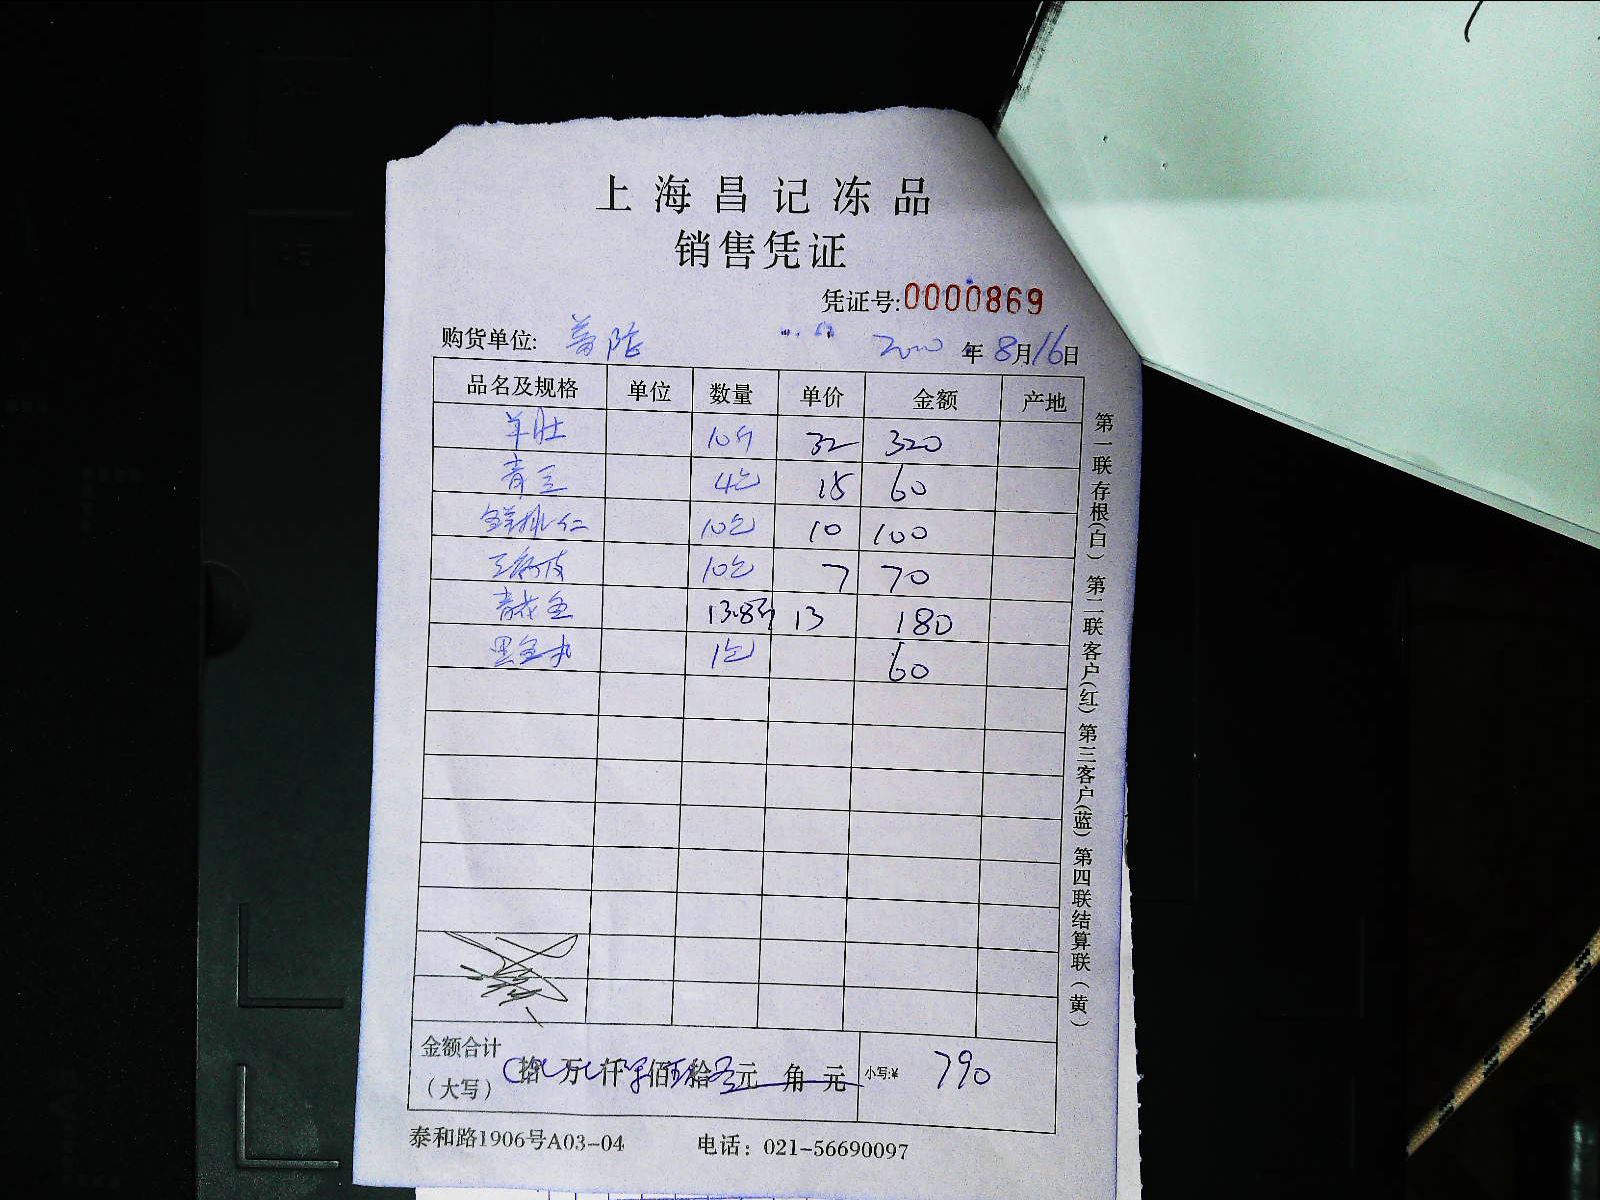 上海昌记冻品
销售凭证
凭证号:0000869
购货单位: 普陀 年 8月16日
品名及规格 单位 数量 单价 金额 产地
羊肚 10斤 32 320
青豆 4包 15 60
10包 10 100
10包 7 70
青花鱼 13.8斤 13 180
1包 60
金额合计
（大写） 拾 万 仟 佰 拾 元 角 元 小写:¥ 790
泰和路1906号A03-04 电话：021-56690097
第一联存根(白) 第二联客户(红) 第三客户(蓝) 第四联结算联(黄)